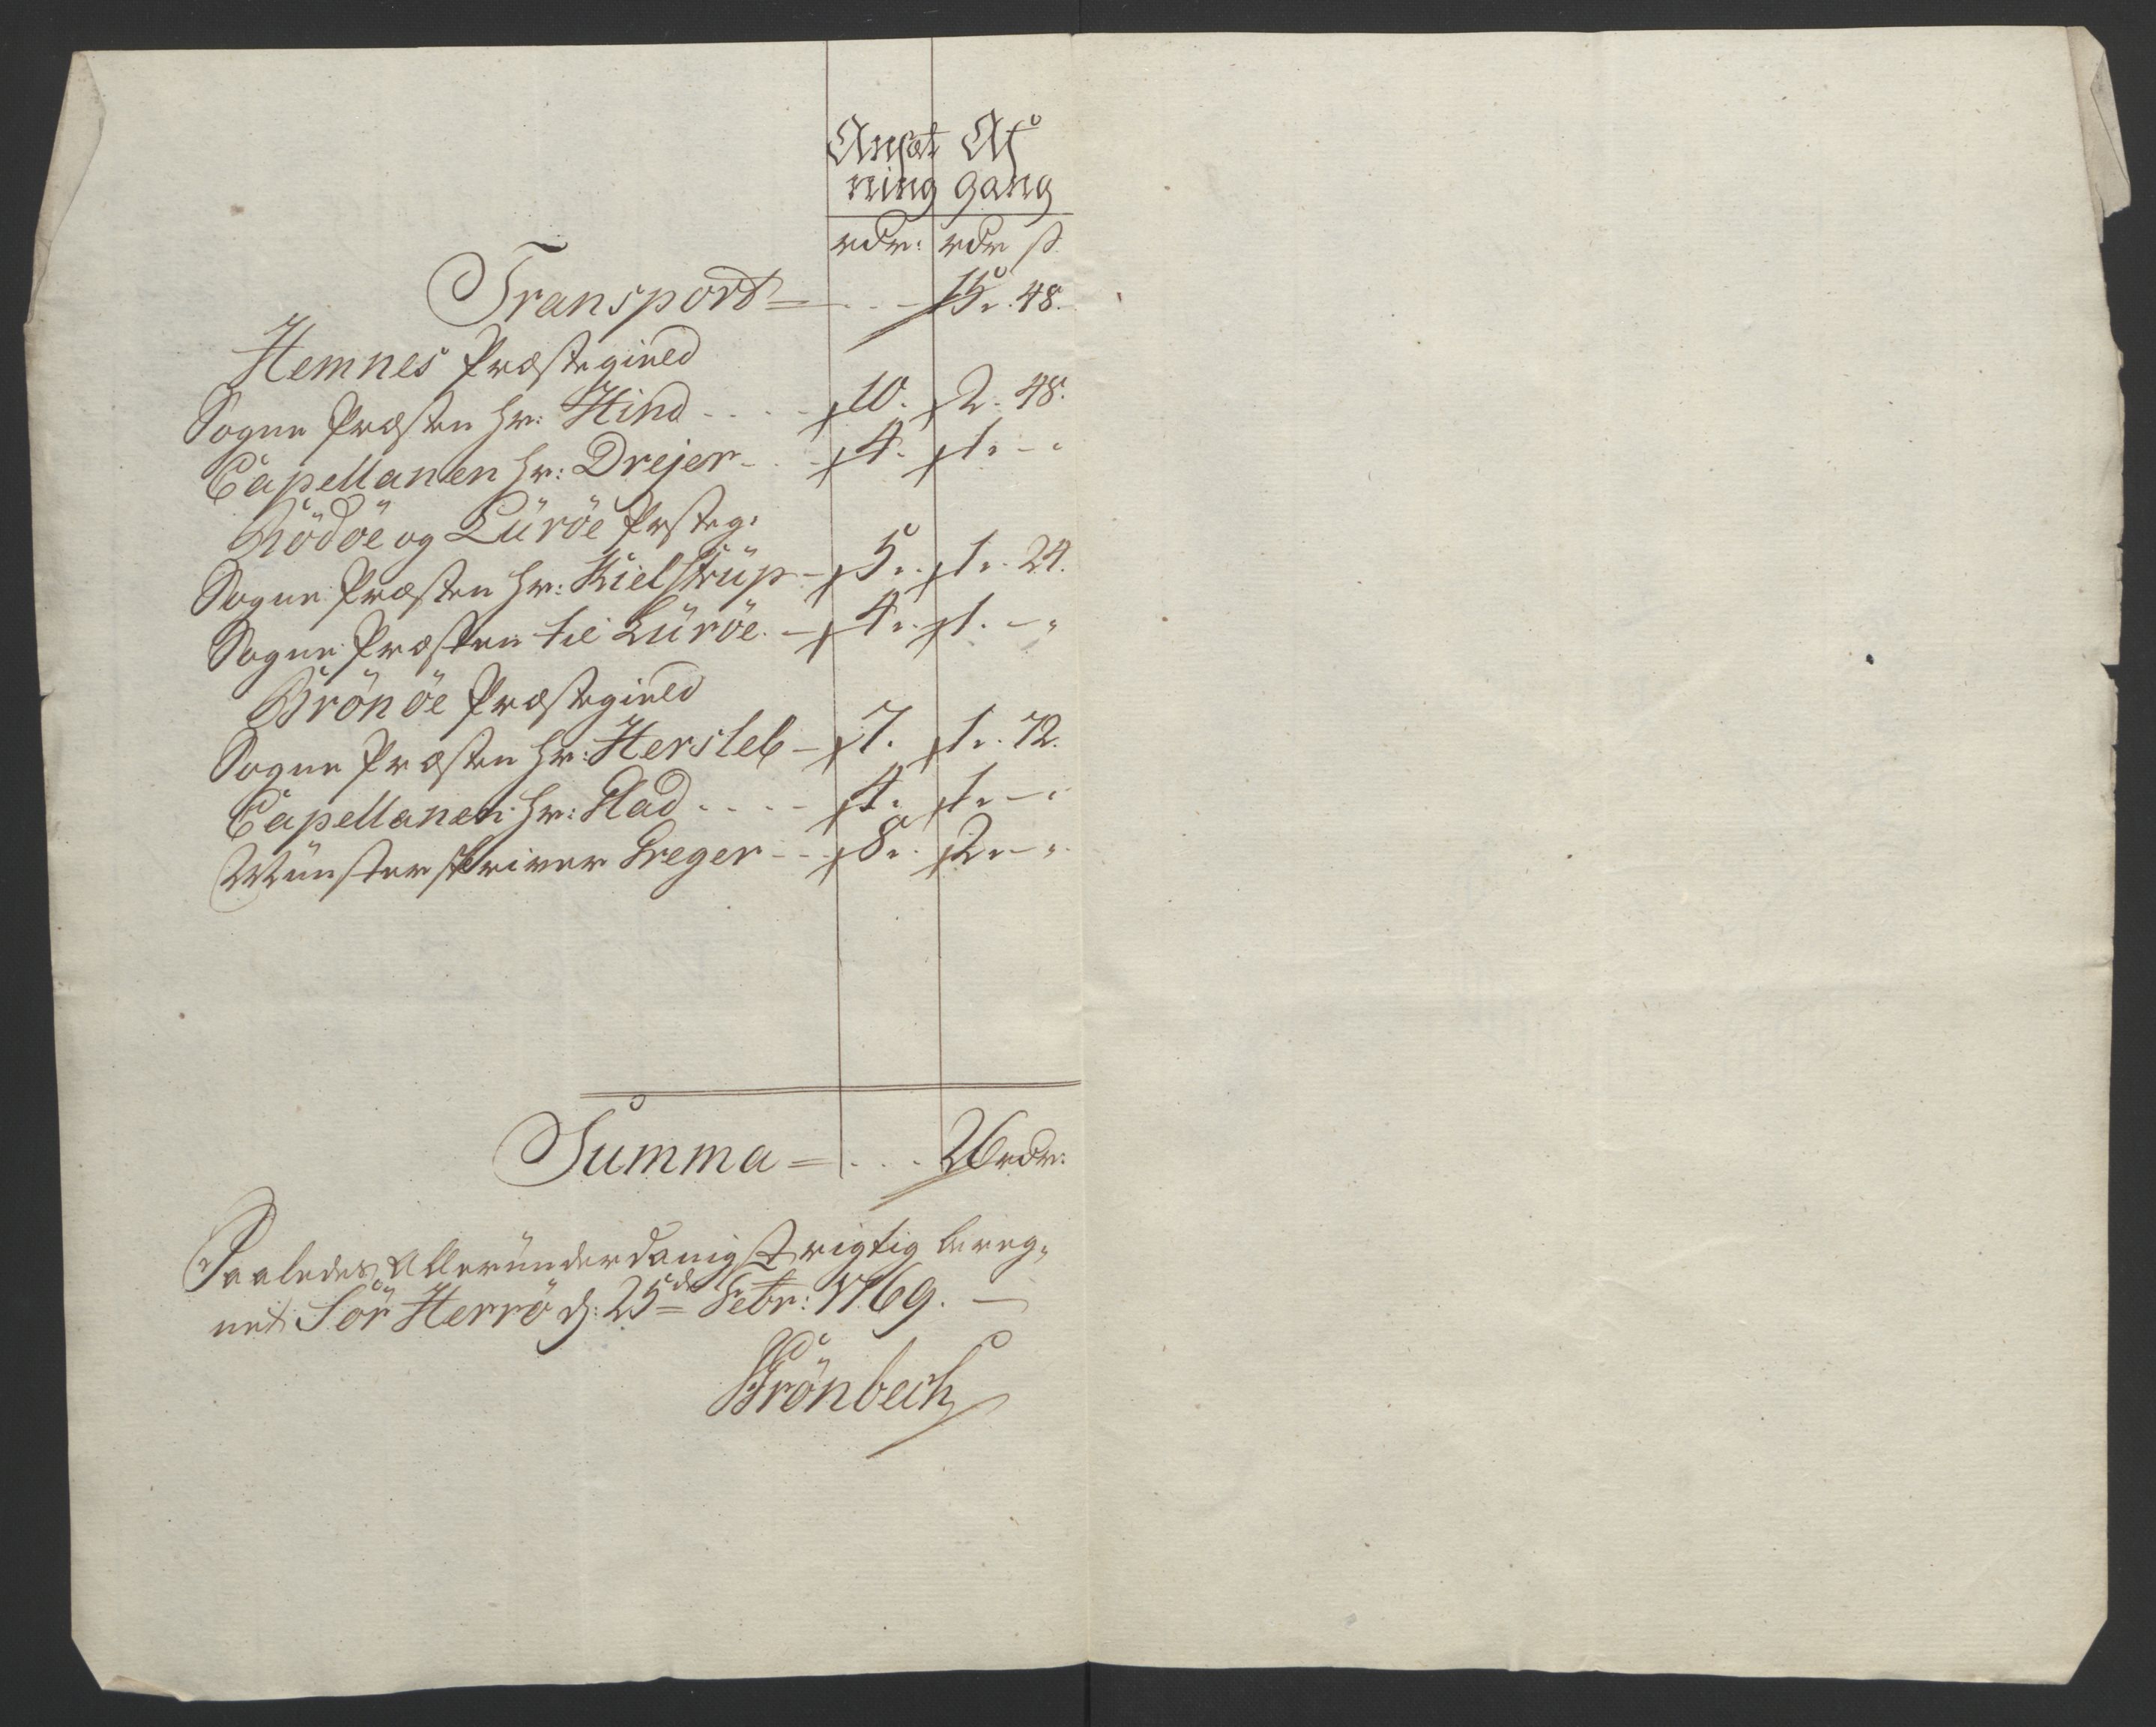 Ansæt Af
ning gang
rdr: rdr ß
Transport = . . - 15 „ 48.
Hemnes Præstegield
Sogne Præsten Hr: Hind - - - - 10. 2. 48.
Capellanen Hr: Drejer - - - 4. 1 „ - „
Rödöe og Luröe Prsteg:
Sogne Præsten Hr: Kielstrup - 5 „ 1 „ 24.
Sogne Præsten til Luröe. - 4 „ 1. - „
Brönöe Præstegield
Sogne Præsten Hr: Hersleb - 7. 1 „ 72.
Capellanen Hr: Flad . - - - 4. 1 „ - „
Münster skriver Greger - - - 8 „ 2 „ - „
Summa = . . . 26 rdr:
Saaledes Allerunderdanigst rigtig bereg„
net Sör Herrö d: 25de Febr: 1769. -
Grönbech